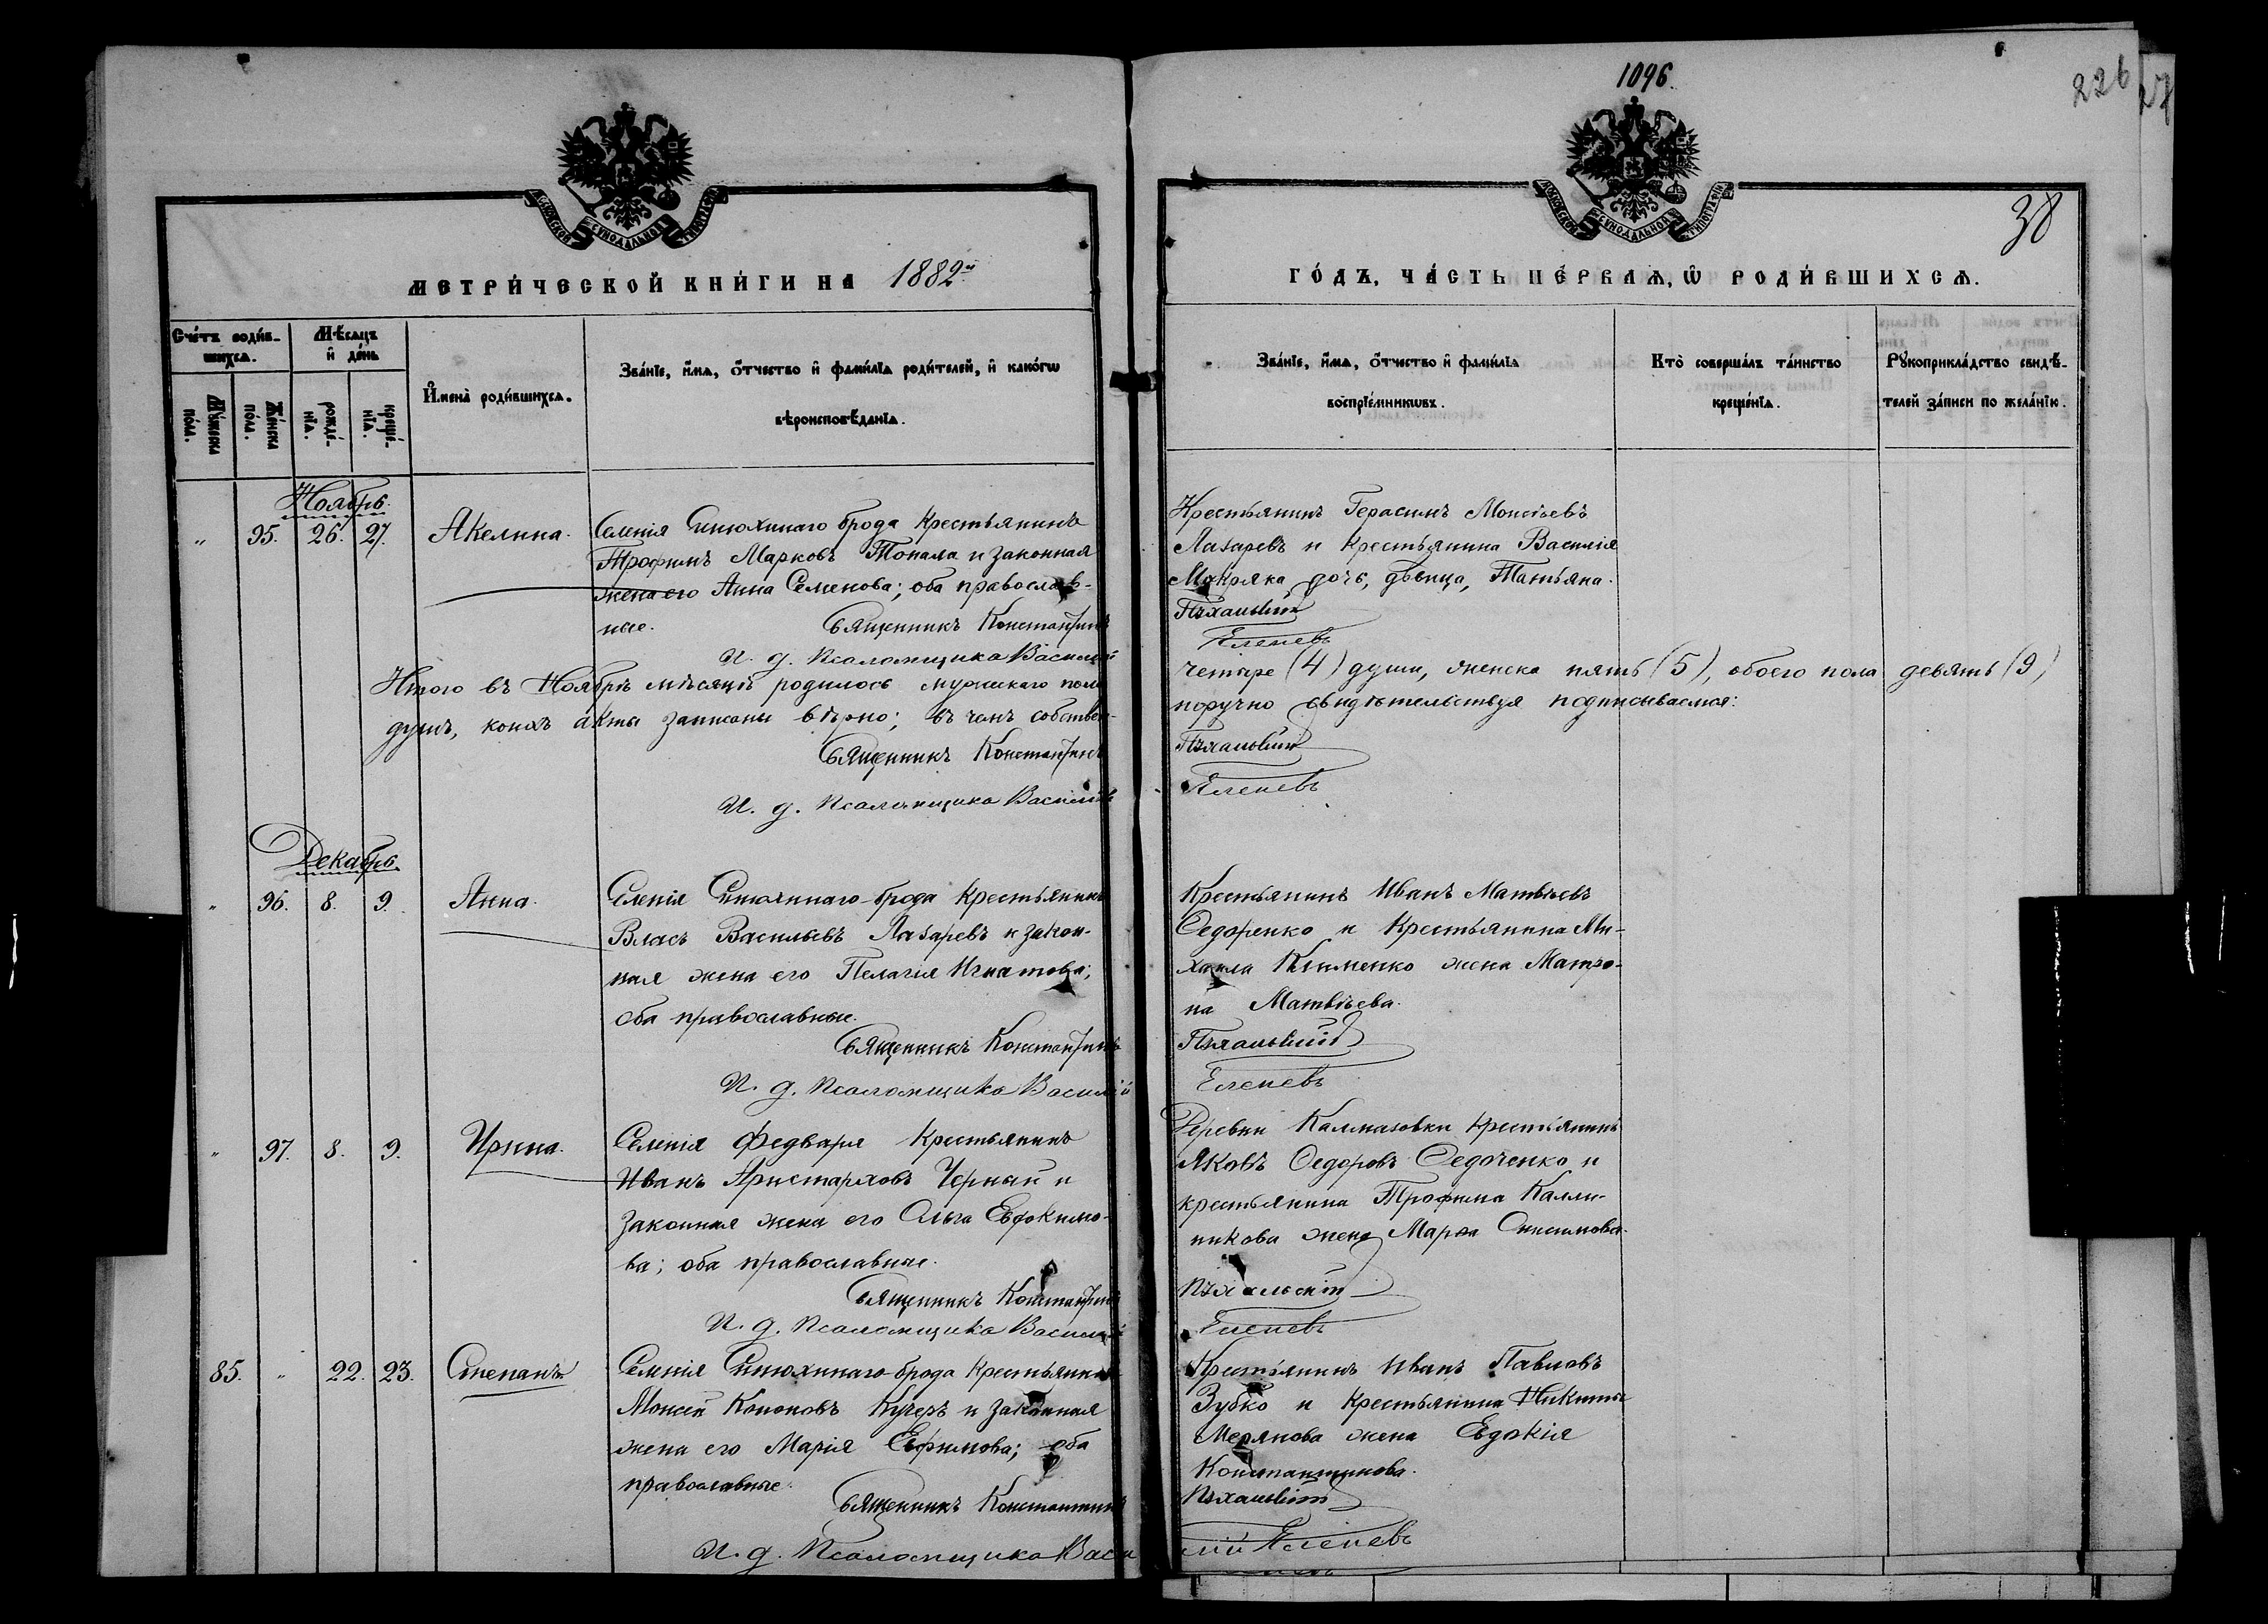 1096.
226
27
38
МОСКОВСКОЙ СѴНОДАЛЬНОЙ ТИПОГРАФІИ
МОСКОВСКОЙ СѴНОДАЛЬНОЙ ТИПОГРАФІИ
МЕТРИ́ЧЕСКОЙ КНИ́ГИ НА 1882й
ГО́ДЪ, ЧА́СТЬ ПЕ́РВАѦ, Ѿ РОДИ́ВШИХСѦ.
Сче́тъ роди́в-
шихсѧ.
Мѣ́сѧцъ
и҆ де́нь
Мꙋ́жеска
по́ла.
Же́нска
по́ла.
рожде́-
нїѧ.
креще́-
нїѧ.
И҆мена̀ роди́вшихсѧ.
Зва́нїе, и҆́мѧ, ѻ҆́тчество и҆ фами́лїѧ роди́телей, и҆ како́гѡ
вѣроисповѣ́данїѧ.
Зва́нїе, и҆́мѧ, ѻ҆́тчество и҆ фами́лїѧ
воспрїе́мникѡвъ.
Кто̀ соверша́лъ та́инство
креще́нїѧ.
Рꙋкоприкла́дство свидѣ́-
телей за́писи по жела́нїю.
Ноябрь.
" 95. 26. 27. Акелина.
Селенія Синюхинаго брода крестьянинъ
Трофимъ Марковъ Топала и законная
жена его Анна Семенова; оба православ-
ные.
Священникъ Константинъ
И. д. Псаломщика Василій
Крестьянинъ Герасимъ Моисѣевъ
Лазаревъ и крестьянина Василія
Мокряка дочь, дѣвица, Татьяна.
Еленевъ
Итого въ Ноябрѣ мѣсяцѣ родилось мужескаго пола четыре (4) души, женска пять (5), обоего пола девять (9)
душъ, коихъ акты записаны вѣрно; въ чемъ собствен- поручно свидѣтельствуя подписываемся:
Священникъ Константинъ
И. д. Псаломщика Василій Еленевъ
Декабрь
" 96. 8. 9. Анна.
Селенія Синюхинаго-брода крестьянинъ
Власъ Васильевъ Лазаревъ и закон-
ная жена его Пелагія Игнатова;
оба православные.
Священникъ Константинъ
И. д. Псаломщика Василій
Крестьянинъ Иванъ Матвѣевъ
Ѳедоренко и Крестьянина Ми-
хаила Клименко жена Матро-
на Матвѣева.
Еленевъ
" 97. 8. 9. Ирина.
Селенія Федваря Крестьянинъ
Иванъ Аристарховъ Черный и
законная жена его Ольга Евдокимо-
ва; оба православные.
Священникъ Константинъ
И. д. Псаломщика Василій
Деревни Калмазовки крестьянинъ
Яковъ Ѳедоровъ Ѳедоченко и
крестьянина Трофима Калли-
никова жена Марѳа Онисимова.
Пѣхальскій
Еленевъ
85. " 22. 23. Степанъ
Селенія Синюхинаго-брода Крестьянинъ
Моисей Кононовъ Кучеръ и законная
жена его Марія Евфимова; оба
православные.
Священникъ Константинъ
И. д. Псаломщика Василій Еленевъ
Крестьянинъ Иванъ Павловъ
Зубко и крестьянина Никиты
жена Евдокія
Константинова.